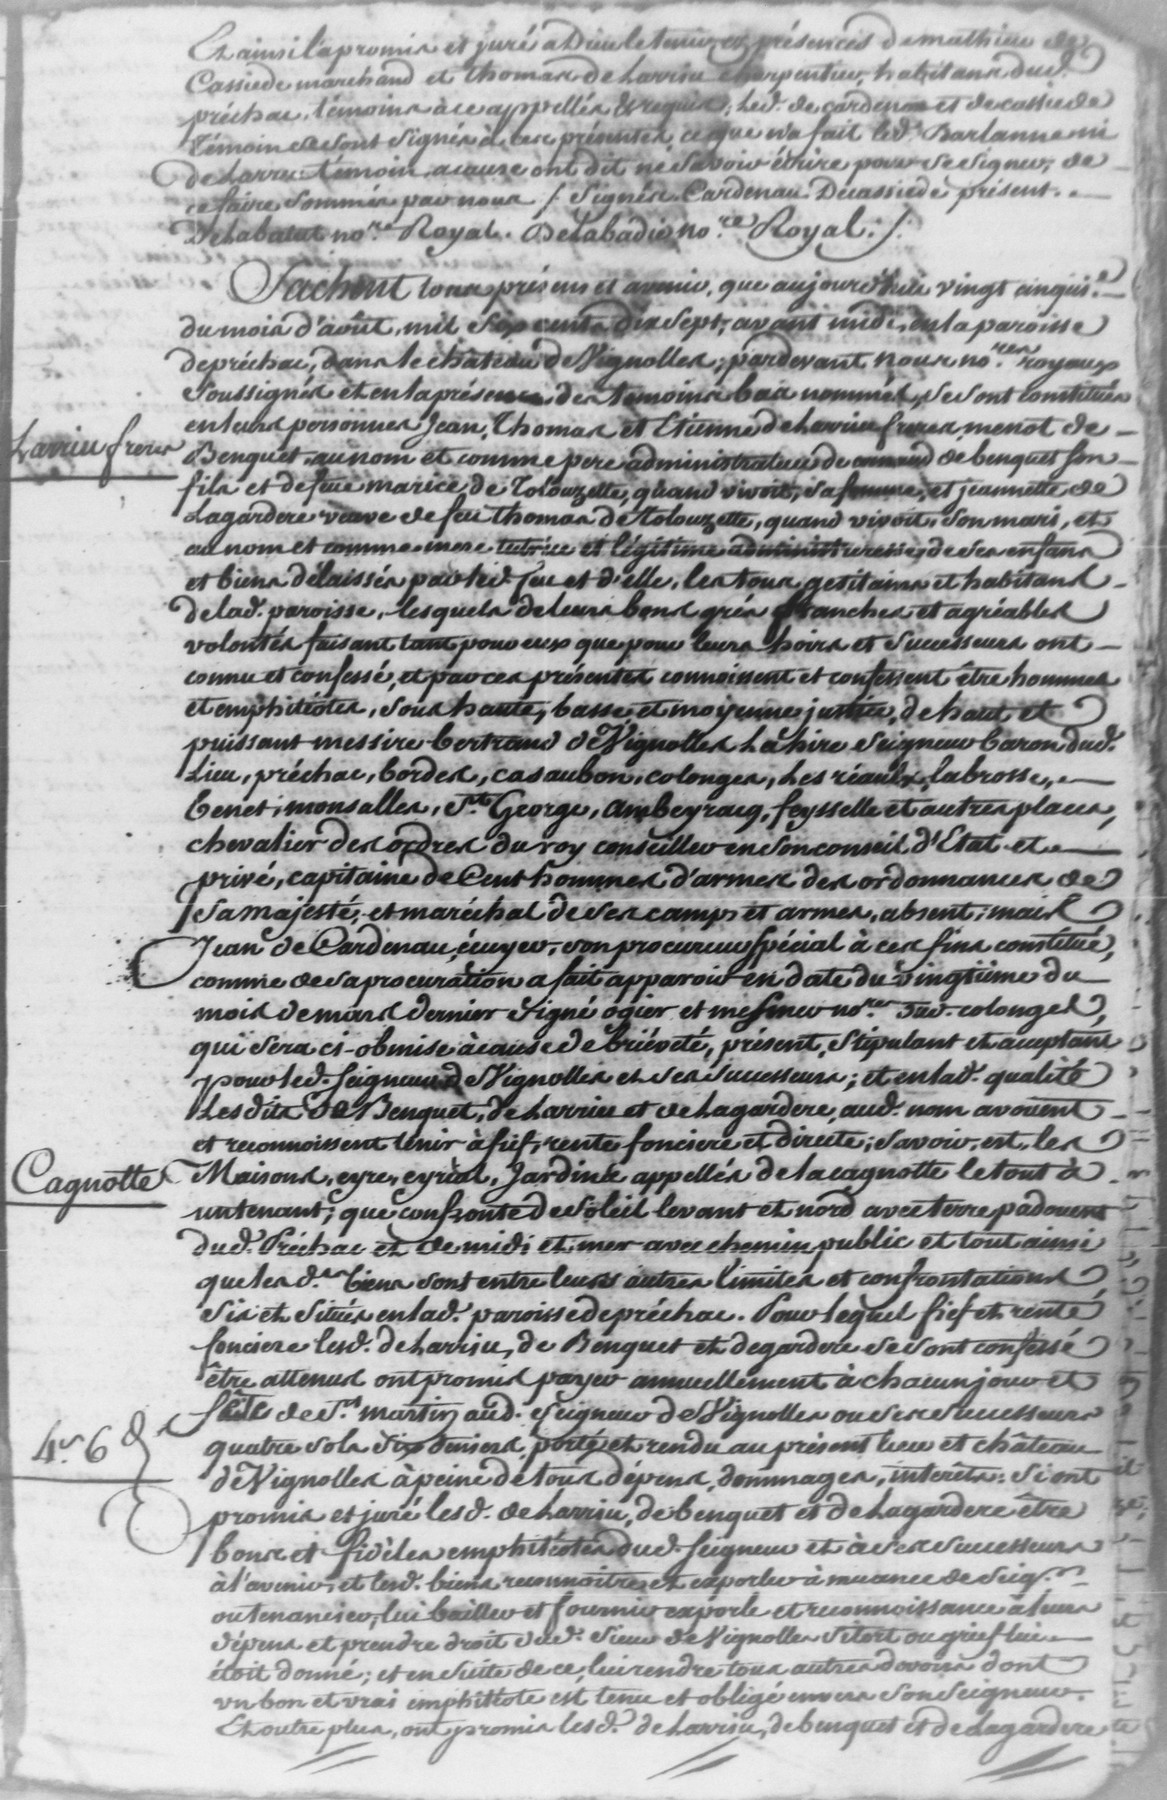 Et ainsi l'a promis et juré a Dieu le tenir ez présences de mathieu de
Cassiede marchand et thomas de Larriu charpentier, habitans dud.
préchac, témoins à ce appellés et requis, led. de cardenau et de cassiede
témoin se sont signés à ces présentes, ce que n'a fait led. Barlanne ni
de Larriu témoin, a cause ont dit ne savoir écrire pour se signer, de
ce faire sommés par nous /. Signés Cardenau Decassiede présent.
Delabatut no.re Royal. Delabadie no.re Royal ./.
Sachent tous présens et avenir, que aujourd'hui vingt cinqui.e
du mois d'août, mil six cents dix sept, avant midi, en la paroisse
de préchac, dans le château de Vignolles, pardevant nous no.res royaux
soussignés et en la présence des temoins bas nommés, se sont constitués
en leurs personnes Jean, Thomas et Etienne de Larriu freres, menot de
Larriu freres
Benquet, au nom et comme pere administrateur de de benquet son
fils et de feue marice de Tolouzette, quand vivoit, sa femme, et jeannette de
Lagardere veuve de feu thomas de Tolouzette, quand vivoit, son mari, et
au nom et comme mere tutrice et légitime administraresse, de ses enfans
et biens délaissés par led. feu et d'elle, les tous gesitains et habitans
de lad. paroisse, lesquels de leurs bons grés franches et agréables
volontés faisant tant pour eux que pour leurs hoirs et successeurs ont
connu et confessé, et par ces présentes connoissent et confessent être hommes
et emphitéotes, sous haute, basse et moyenne justice, de haut et
puissant messire bertrand de Vignolles Lahire seigneur baron dud.
Lieu, préchac, bordes, casaubon, colonges, Les réaulx, labrosse,
benet, monsalles, St. George, Ambeyracq, feysselle et autres places,
chevalier des ordres du roy conseiller en son conseil d'Etat et
privé, capitaine de Cent hommes d'armes des ordonnances de
Sa majesté, et maréchal de ses camps et armes, absent, mais
Jean de Cardenau, écuyer, son procureur spécial à ces fins constitué,
comme de sa procuration a fait apparoir en date du vingtiéme du
mois de mars dernier signé ogier et mesmer no.res dud. colonges,
qui sera ci-obmise à cause de briéveté, présent, stipulant et acceptant
pour led. seigneur de Vignolles et ses successeurs; et en lad. qualité
Lesdits de Benquet, de Larriu et de Lagardere, aud. nom avouent
et reconnoissent tenir à fief, rente fonciere et directe, savoir, est, les
Cagnotte
Maisons, eyre, eyrial, Jardins appellés de lacagnotte le tout à
un tenant, que confronte de soleil levant et nord avec terre padouent
dud. Préchac et de midi et mer avec chemin public et tout ainsi
que les d.es biens sont entre leurs autres limites et confrontations
sis et situés en lad. paroisse de préchac. Pour lequel fief et rente
fonciere lesd. de Larriu, de Benquet et degardere se sont confessé
être attenus ont promis payer annuellement à chacun jour et
fête de St. martin aud. seigneur de Vignolles ou ses successeurs
4.s 6 d.
quatre sols six deniers, porté et rendu au présent lieu et château
de Vignolles à peine de tous dépens, dommages, interêts. Si ont
promis et juré lesd. de Larriu, de benquet et de Lagardere être
bons et fidèles emphitéotes dud. seigneur et à ses successeurs
à l'avenir, et lesd. biens reconnoitre et exporler à muance de seig.r
ou tenancier, lui bailler et fournir exporle et reconnoissance à leurs
dépens et prendre droit dud. sieur de Vignolles si tort ou grief lui
étoit donné; et en suite de ce, lui rendre tous autres devoirs dont
un bon et vrai emphitéote est tenu et obligé envers son seigneur.
Et outre plus, ont promis lesd. de Larriu, de benquet et de Lagardere